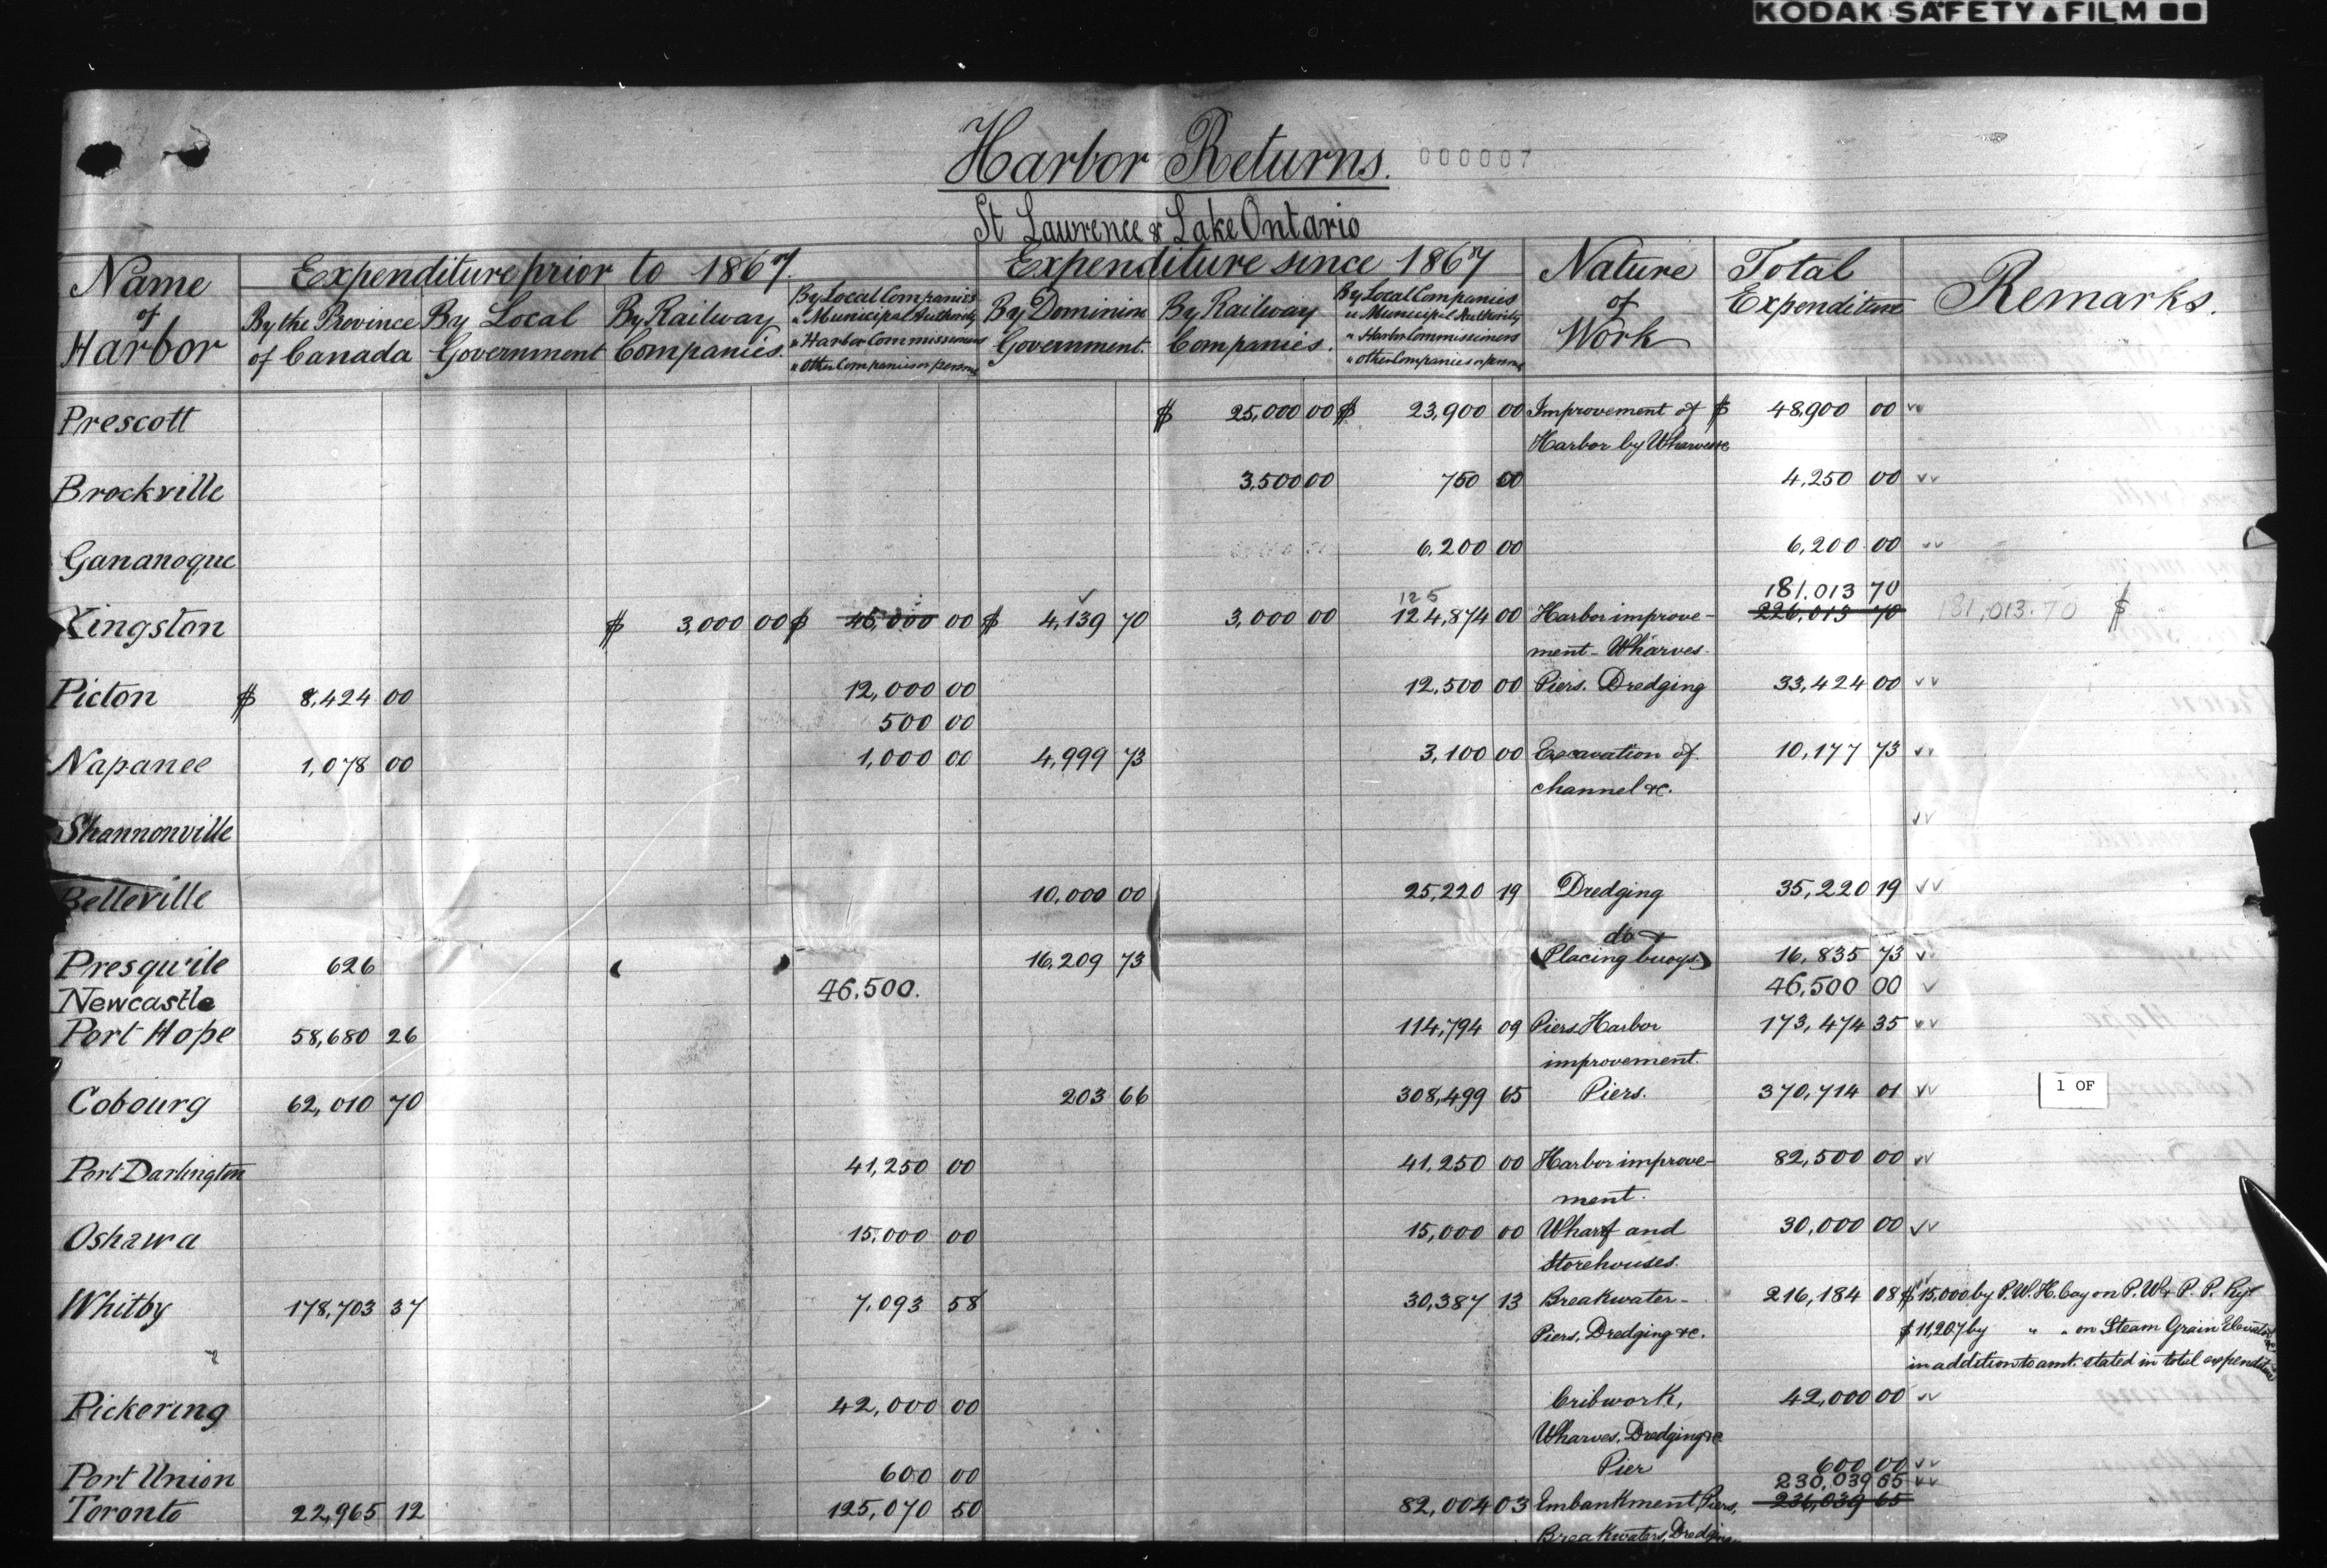 KODAK SAFETY ▲ FILM
Harbor Returns. 000007
St Lawrence & Lake Ontario
Name of Harbor
Expenditure prior to 1867.
Expenditure since 1867
Nature of Work
Total Expenditure
Remarks.
By the Province of Canada
By Local Government
By Railway Companies.
By Local Companies
" Municipal Authority
" Harbor Commissioners
" Other Companies or persons
By Dominion Government.
By Railway Companies.
By Local Companies
" Municipal Authority
" Harbor Commissioners
" Other Companies or persons
Prescott $ 25,000 00 $ 23,900 00 Improvement of $ 48,900 00
Harbor by Wharves &c
Brockville 3,500 00 750 00 4,250 00
Gananoque 6,200 00 6,200 00
181.013 70
125
Kingston $ 3,000 00 $ 45,000 00 $ 4,139 70 3,000 00 124,874 00 Harbor improve- 226,013 70 181,013.70 $
ment - Wharves
Picton $ 8,424 00 12,000 00 12,500 00 Piers. Dredging 33,424 00
500 00
Napanee 1,078 00 1,000 00 4,999 73 3,100 00 Excavation of 10,177 73
channel &c.
Shannonville
Belleville 10,000 00 25,220 19 Dredging 35,220 19
do &
Presqu'ile 626 16,209 73 (Placing buoys.) 16,835 73
Newcastle 46,500. 46,500 00
Port Hope 58,680 26 114,794 09 Piers Harbor 173,474 35
improvement.
Cobourg 62,010 70 203 66 308,499 65 Piers. 370,714 01
1 OF
Port Darlington 41,250 00 41,250 00 Harbor improve- 82,500 00
ment.
Oshawa 15.000 00 15,000 00 Wharf and 30,000 00
Storehouses.
Whitby 178,703 37 7,093 58 30,387 13 Breakwater- 216,184 08 $15,000 by P.W.H. Coy on P.W & P.P. Ry
Piers, Dredging &c. $11,207 by " " on Steam Grain Elevator
in addition to amt. stated in total expenditure
Pickering 42,000 00 Cribwork, 42,000 00
Wharves, Dredging &c
Port Union 600 00 Pier 600 00
230,039 65
Toronto 22,965 12 125,070 50 82,004 03 Embankment, Piers, 236,039 65
Breakwaters, Dredging